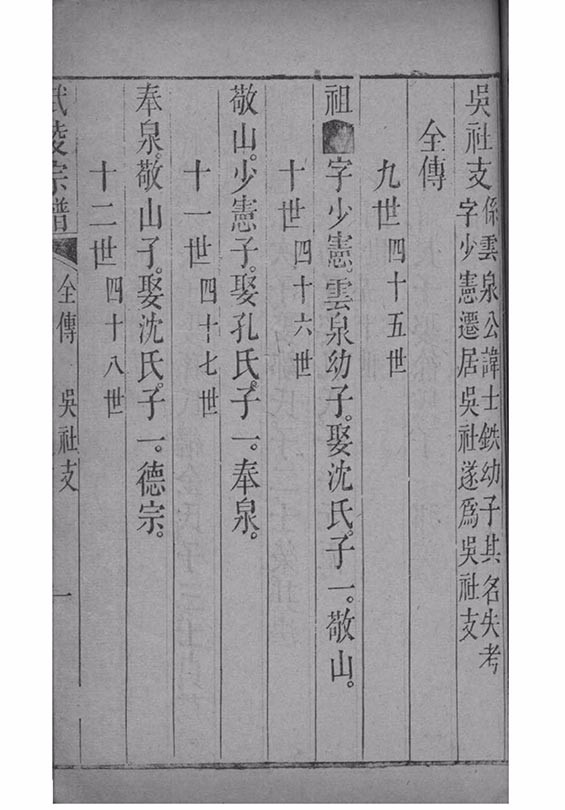 吳社支係雲泉公諱士鉄幼子其名失考
字少憲遷居吳社遂爲吳社支
全傳
九世四十五世
祖 字少憲。雲泉幼子。娶沈氏。子一。敬山。
十世四十六世
敬山。少憲子。娶孔氏。子一。奉泉。
十一世四十七世
奉泉。敬山子。娶沈氏。子一。德宗。
十二世四十八世
武陵宗譜 全傳 吳社支 一